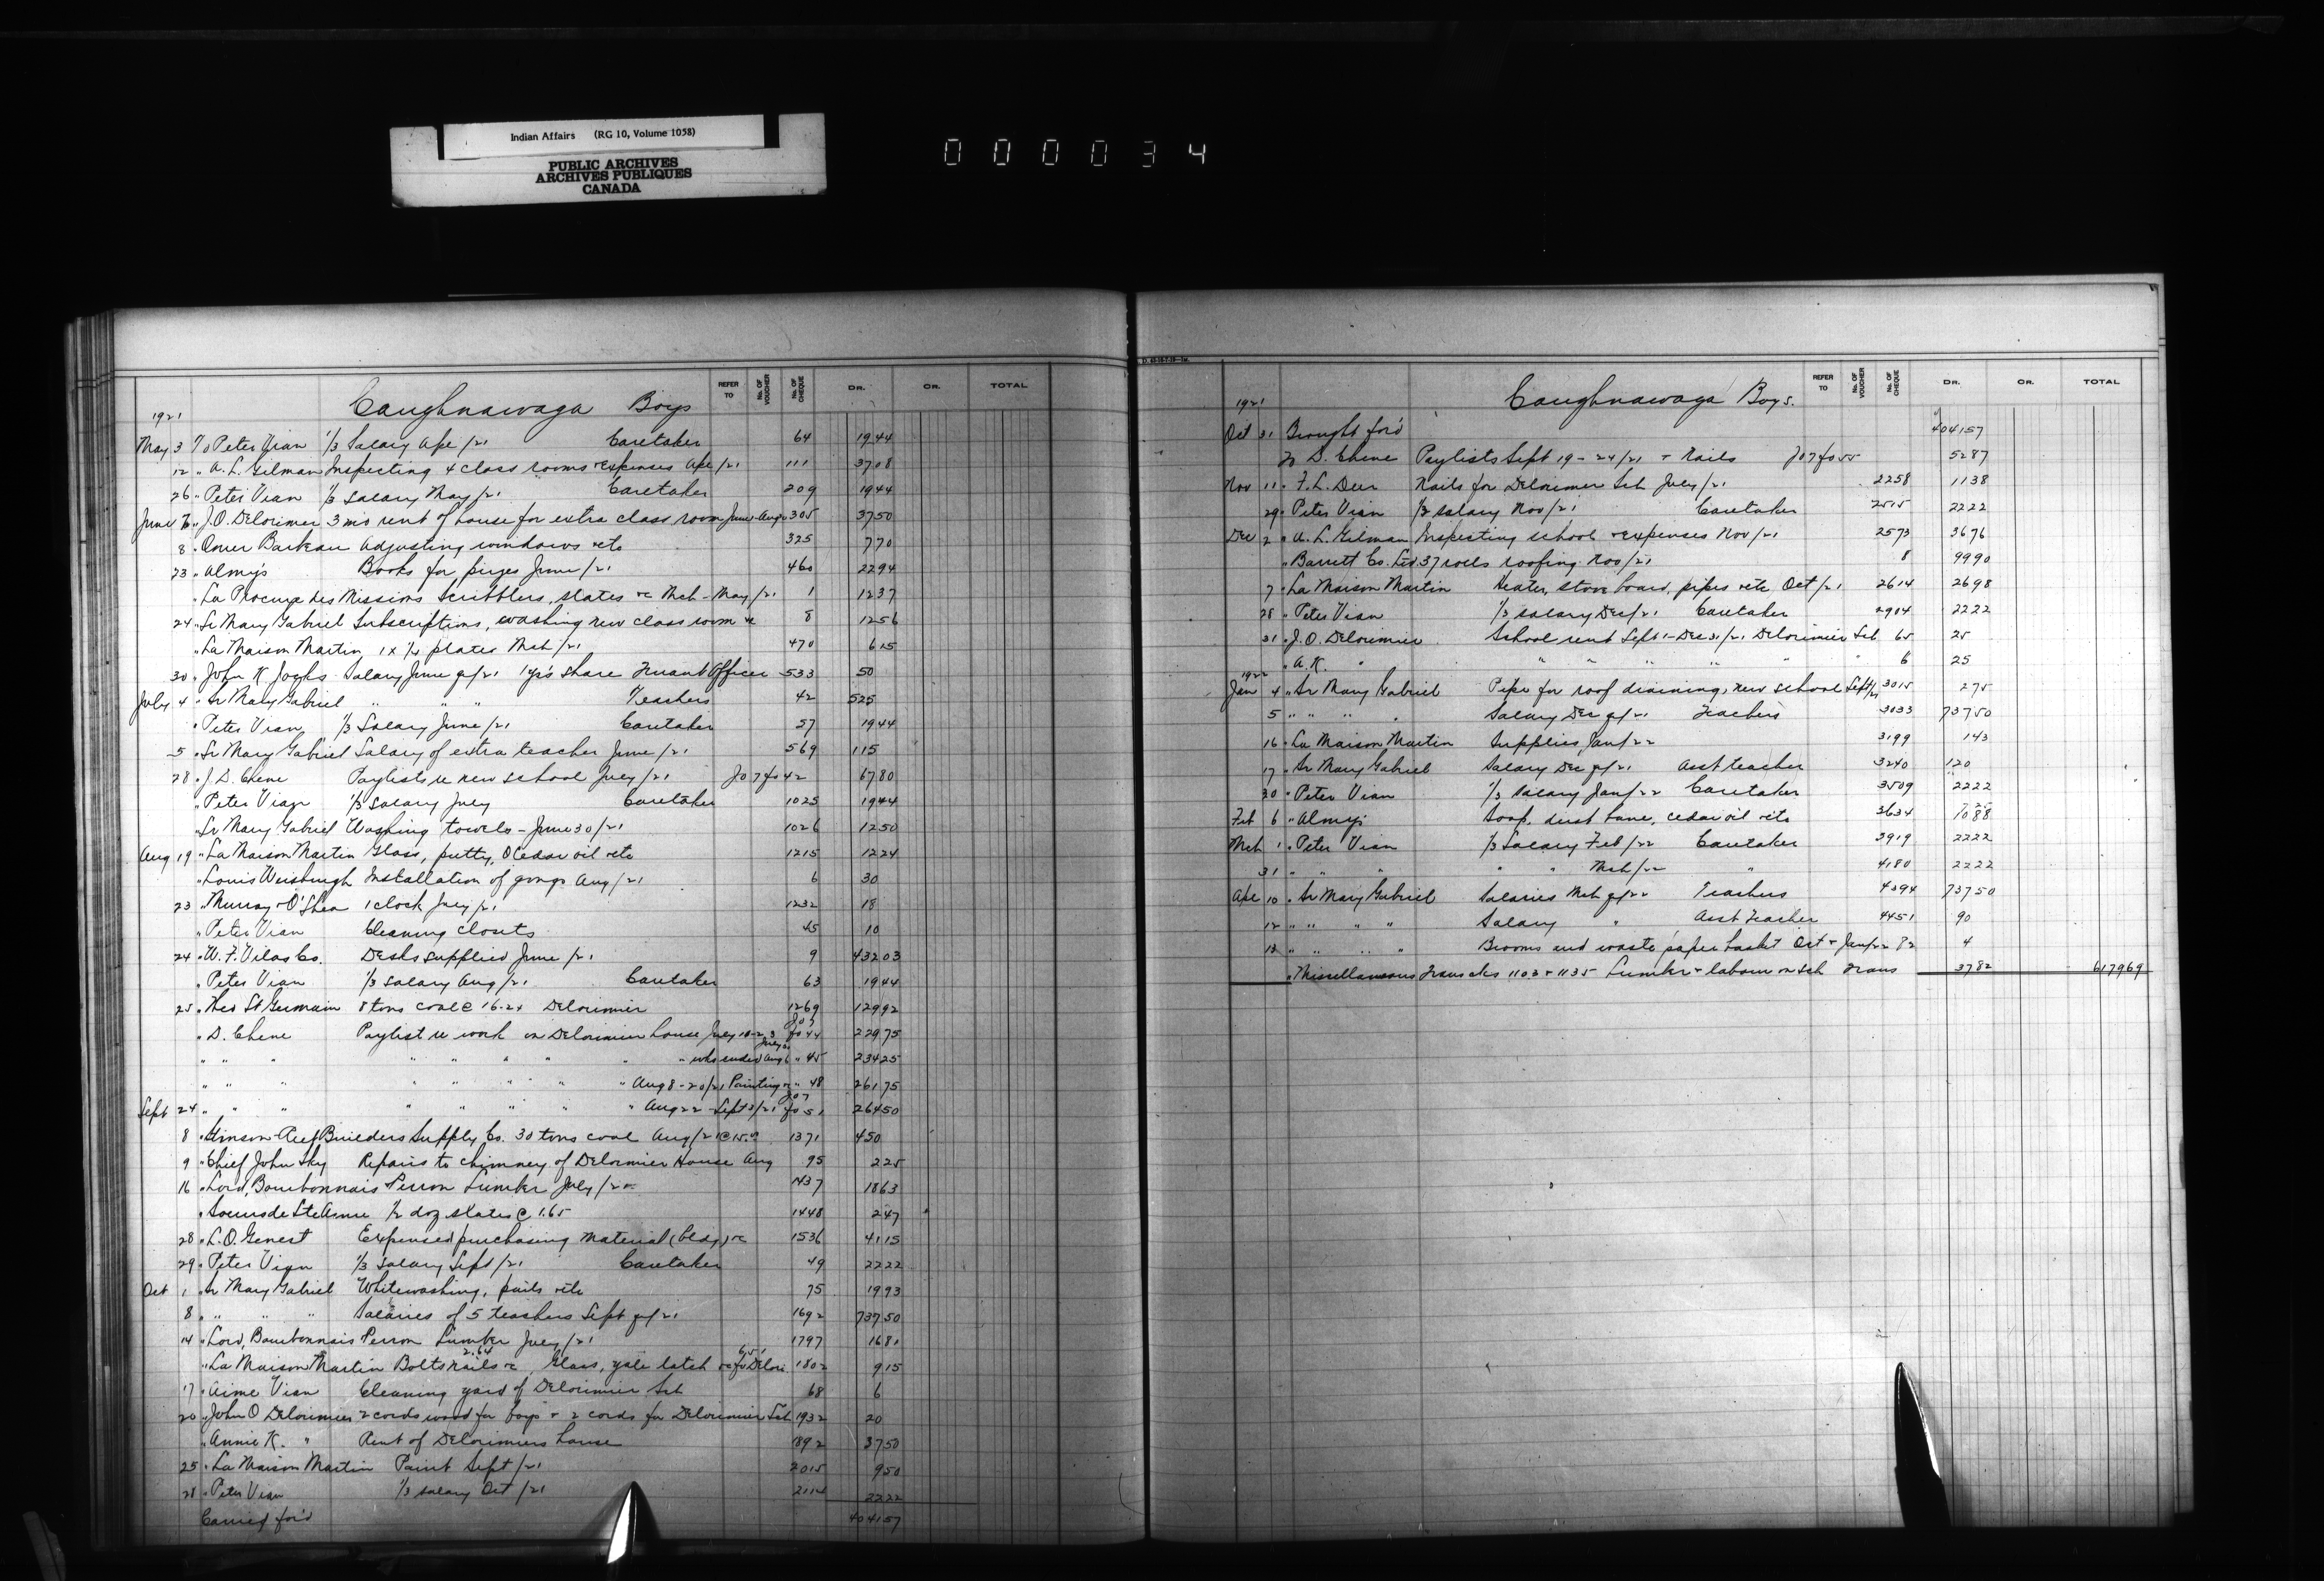 Indian Affairs (RG 10, Volume 1058)
PUBLIC ARCHIVES
ARCHIVES PUBLIQUES
CANADA
000034
REFER TO No. OF VOUCHER No. OF CHEQUE DR. CR. TOTAL
1921 Caughnawaga Boys
May 3 To Peter Vian 1/3 Salary Ape /21 Caretaker 64 1944
12 " A. L. Gilman Inspecting 4 class rooms + expenses Ape /21 111 3708
26 " Peter Vian 1/3 Salary May /21 Caretaker 209 1944
June 7 " J. O. Delorimier 3 mos rent of house for extra class room June-Aug 305 3750
8 " Omer Barbeau Adjusting windows etc 325 770
23 " Almy's Books for prizes June /21 460 2294
" La Procure des Missions Scribblers, slates &c Mch - May /21 1 1237
24 " Sr Mary Gabriel Subscriptions, washing new class room &c 8 1256
" La Maison Martin 1 x 1/4 plates Mch /21 470 615
30 " John K. Jocks Salary June qr/21 1 yr's share Truant Officer 533 50
July 4 " Sr Mary Gabriel " " " Teachers 42 525
" Peter Vian 1/3 Salary June /21 Caretaker 57 1944
5 " Sr Mary Gabriel Salary of extra teacher June /21 569 115
28 " J. D. Chene Paylists re new school July /21 Jo 7 fo 42 6780
" Peter Vian 1/3 Salary July Caretaker 1025 1944
" Sr Mary Gabriel Washing towels - June 30/21 1026 1250
Aug 19 " La Maison Martin Glass, putty, O Cedar oil etc 1215 1224
" Louis Installation of gongs Aug /21 6 30
23 " Murray + O'Shea 1 clock July /21 1232 18
" Peter Vian Cleaning closets 45 10
24 " W. F. Vilas Co. Desks supplied June /21 9 43203
" Peter Vian 1/3 Salary Aug /21 Caretaker 63 1944
25 " Theo St Germain 8 tons coal @ 16.24 Delorimier 1269 12992
" D. Chene Paylist re work on Delorimier house July 18-23 Jo 7 fo 44 22975
" " " " " " " " wks ended Aug 6 " 45 23425
" " " " " " " " Aug 8-20/21 Painting &c " 48 26175
Sept 24 " " " " " " " " Aug 22 - Sept 3/21 Jo 7 fo 51 26450
8 " Stinson-Reeb Builders Supply Co. 30 tons coal Aug /21 @ 15.00 1371 450
9 " Chief John Sky Repairs to chimney of Delorimier House Aug 95 225
16 " Lord, Bourbonnais Perron Lumber July /21 1437 1863
" Soeurs de Ste Anne 1/2 doz slates @ 1.65 1448 247
28 " L. O. Genest Expenses purchasing material (bldg) &c 1536 4115
29 " Peter Vian 1/3 Salary Sept /21 Caretaker 49 2222
Oct 1 " Sr Mary Gabriel Whitewashing, pails etc 75 1993
8 " " " " Salaries of 5 teachers Sept qr/21 1692 73750
14 " Lord, Bourbonnais Perron Lumber July /21 1797 1681
" La Maison Martin Bolts nails &c 2.64, Glass, yale latch &c for Delori. 6.51 1802 915
17 " Aime Vian Cleaning yard of Delorimier Sch 68 6
20 " John O Delorimier 2 cords wood for boys + 2 cords for Delorimier Sch 1932 20
" Annie K. " Rent of Delorimiers house 1892 3750
25 " La Maison Martin Paint Sept /21 2015 950
28 " Peter Vian 1/3 Salary Oct /21 2114 2222
Carried for'd 404157
REFER TO No. OF VOUCHER No. OF CHEQUE DR. CR. TOTAL
1921 Caughnawaga Boys.
Oct 31 Brought for'd 404157
To D. Chene Paylists Sept 19-24/21 + Nails Jo 7 fo 55 5287
Nov 11 " F. L. Deer Nails for Delorimier Sch July /21 2258 1138
29 " Peter Vian 1/3 Salary Nov /21 Caretaker 2515 2222
Dec 2 " A. L. Gilman Inspecting school + expenses Nov /21 2573 3676
" Barrett Co. Ltd 37 rolls roofing Nov /21 8 9990
7 " La Maison Martin Heater, stove board, pipes etc Oct /21 2614 2698
28 " Peter Vian 1/3 Salary Dec /21 Caretaker 2904 2222
31 " J. O. Delorimier School rent Sept 1 - Dec 31/21 Delorimier Sch 65 25
" A. K. " " " " " " " 6 25
1922
Jan 4 " Sr Mary Gabriel Pipe for roof draining, new school Sept/21 3015 275
5 " " " " Salary Dec qr/21 Teachers 3033 73750
16 " La Maison Martin Supplies Jan /22 3199 143
17 " Sr Mary Gabriel Salary Dec qr/21 Asst teacher 3240 120
30 " Peter Vian 1/3 Salary Jan /22 Caretaker 3509 2222
Feb 6 " Almys Soap, dust bane, cedar oil etc 3634 1088
Mch 1 " Peter Vian 1/3 Salary Feb /22 Caretaker 3919 2222
31 " " " " " Mch /22 " 4180 2222
Ape 10 " Sr Mary Gabriel Salaries Mch qr/22 Teachers 4394 73750
12 " " " " Salary " Asst Teacher 4451 90
13 " " " " Brooms and waste paper basket Oct + Jan/22 82 4
" Miscellaneous Trans cks 1103 + 1135 Lumber + labour on sch Trans 3782 617969